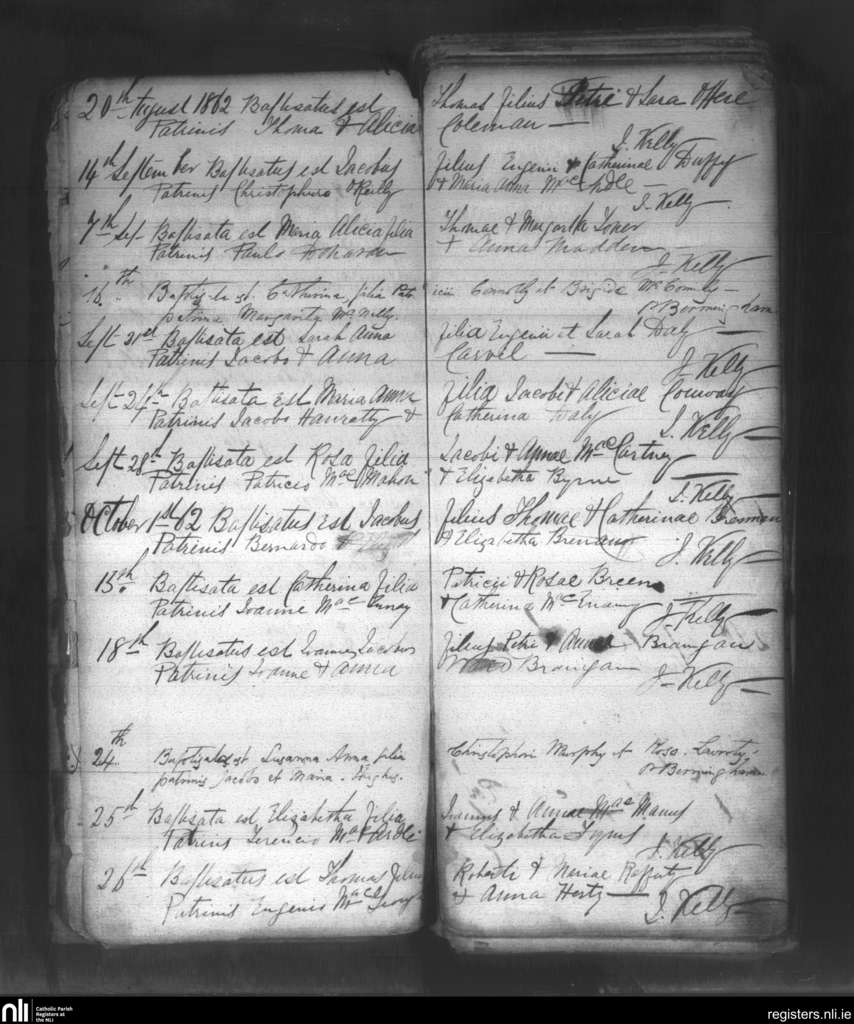 20th August 1862 Baptisatus est Thomas filius Petri & Sara O Hare
Patrinis Thoma & Alicia Coleman —
J. Kelly
14th September Baptisatus est Jacobus filius Eugenii & Catherinae Duffy
Patrinis Christophero O Reilly & Maria Anna McArdle —
J. Kelly —
7th Sep— Baptisata est Maria Alicia filia Thomae & Margarita
Patrinis Paulo & Anna Madden —
J. Kelly
16th Baptizata est Catherina filia Connolly et Brigida
patrina Margarita McNally.
P Bermingham
Sept 21st Baptisata est Sarah Anna filia Eugenii et Sarah Daly
Patrinis Jacobo & Anna —
J. Kelly
Sept 24th Baptisata est Maria Anna filia Jacobi & Aliciae Conway
Patrinis Jacobo Hanratty & Catherina Daly
J. Kelly —
Sept 28th Baptisata est Rosa filia Jacobi & Annae MacCartney
Patrinis Patricio MacMahon & Elizabetha Byrne —
J. Kelly —
October 1st 62 Baptisatus est Jacobus filius Thomae & Catherinae
Patrinis Bernardo & Elizabetha
J. Kelly —
15th Baptisata est Catherina filia Patricii & Rosae Breen
Patrinis Joanne & Catherina
J. Kelly —
18th Baptisatus est Joannes Jacobus filius Petri & Anna Branigan
Patrinis Joanne & Anna Branigan
J. Kelly —
24th Baptizata est Susanna Anna filia Christophori Murphy et Rosa
patrinis Jacobo et Maria Hughes.
P Bermingham
25th Baptisata est Elizabetha filia Joannis & Annae MacManus
Patrinis Terencio MacArdle & Elizabetha
J. Kelly
26th Baptisatus est Thomas filius Roberti & Mariae
Patrinis Eugenio & Anna —
J. Kelly —
nli
Catholic Parish
Registers at
the NLI
registers.nli.ie